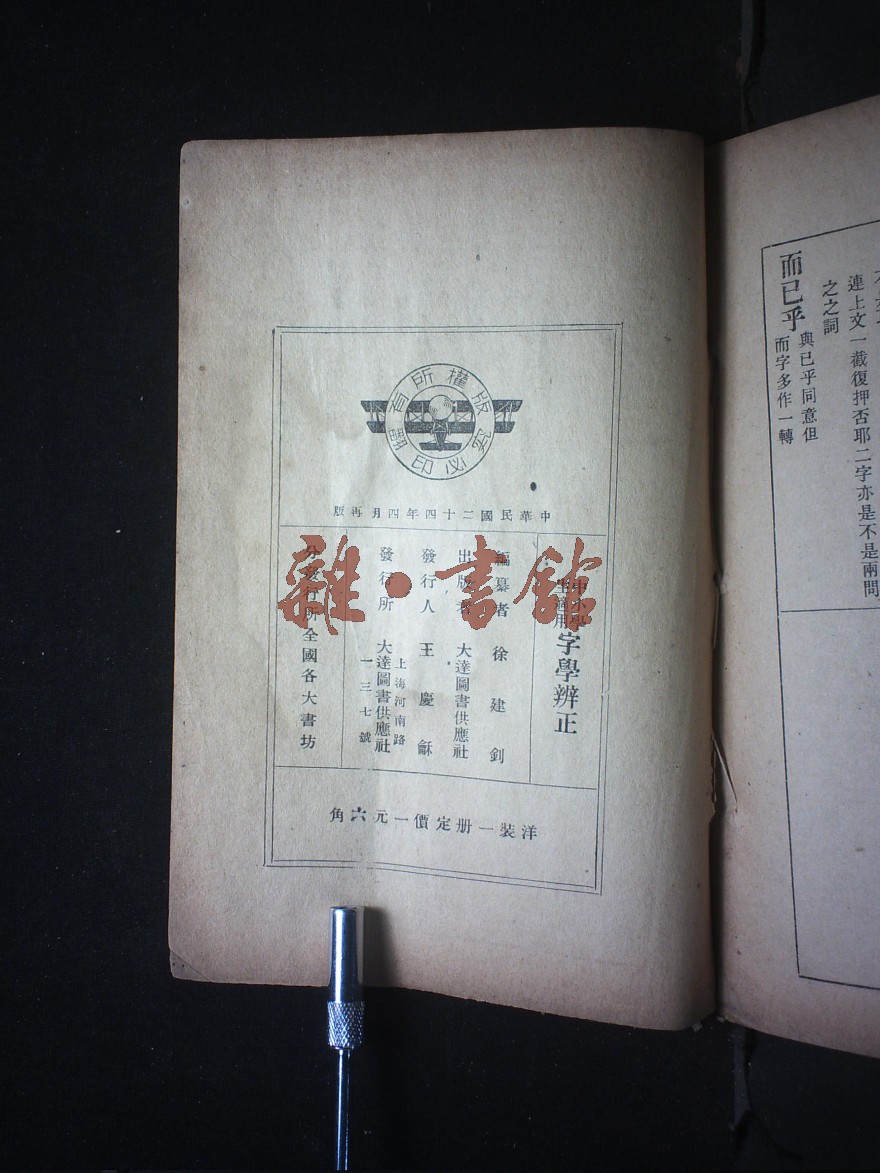 而已乎 與已乎同意但
而字多作一轉
連上文一截復押否耶二字亦是不是兩問
之之詞
版權所有
翻印必究
中華民國二十四年四月再版
中小學
生適用
字學辨正
編纂者 徐建釗
出版者 大達圖書供應社
發行人 王慶龢
發行所 上海河南路
一三七號
大達圖書供應社
分發行所全國各大書坊
洋裝一册定價一元六角
雜·書館